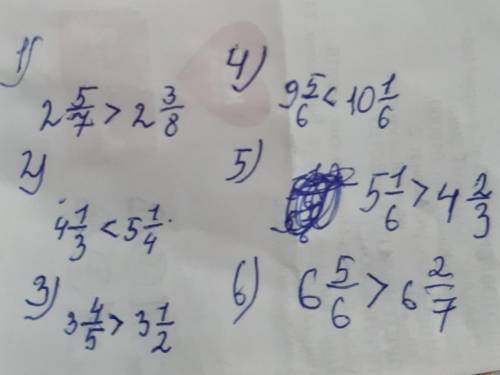 1)
2 5/7 > 2 3/8
2)
4 1/3 < 5 1/4
3)
3 4/5 > 3 1/2
4)
9 5/6 < 10 1/6
5)
5 1/6 > 4 2/3
6)
6 5/6 > 6 2/7